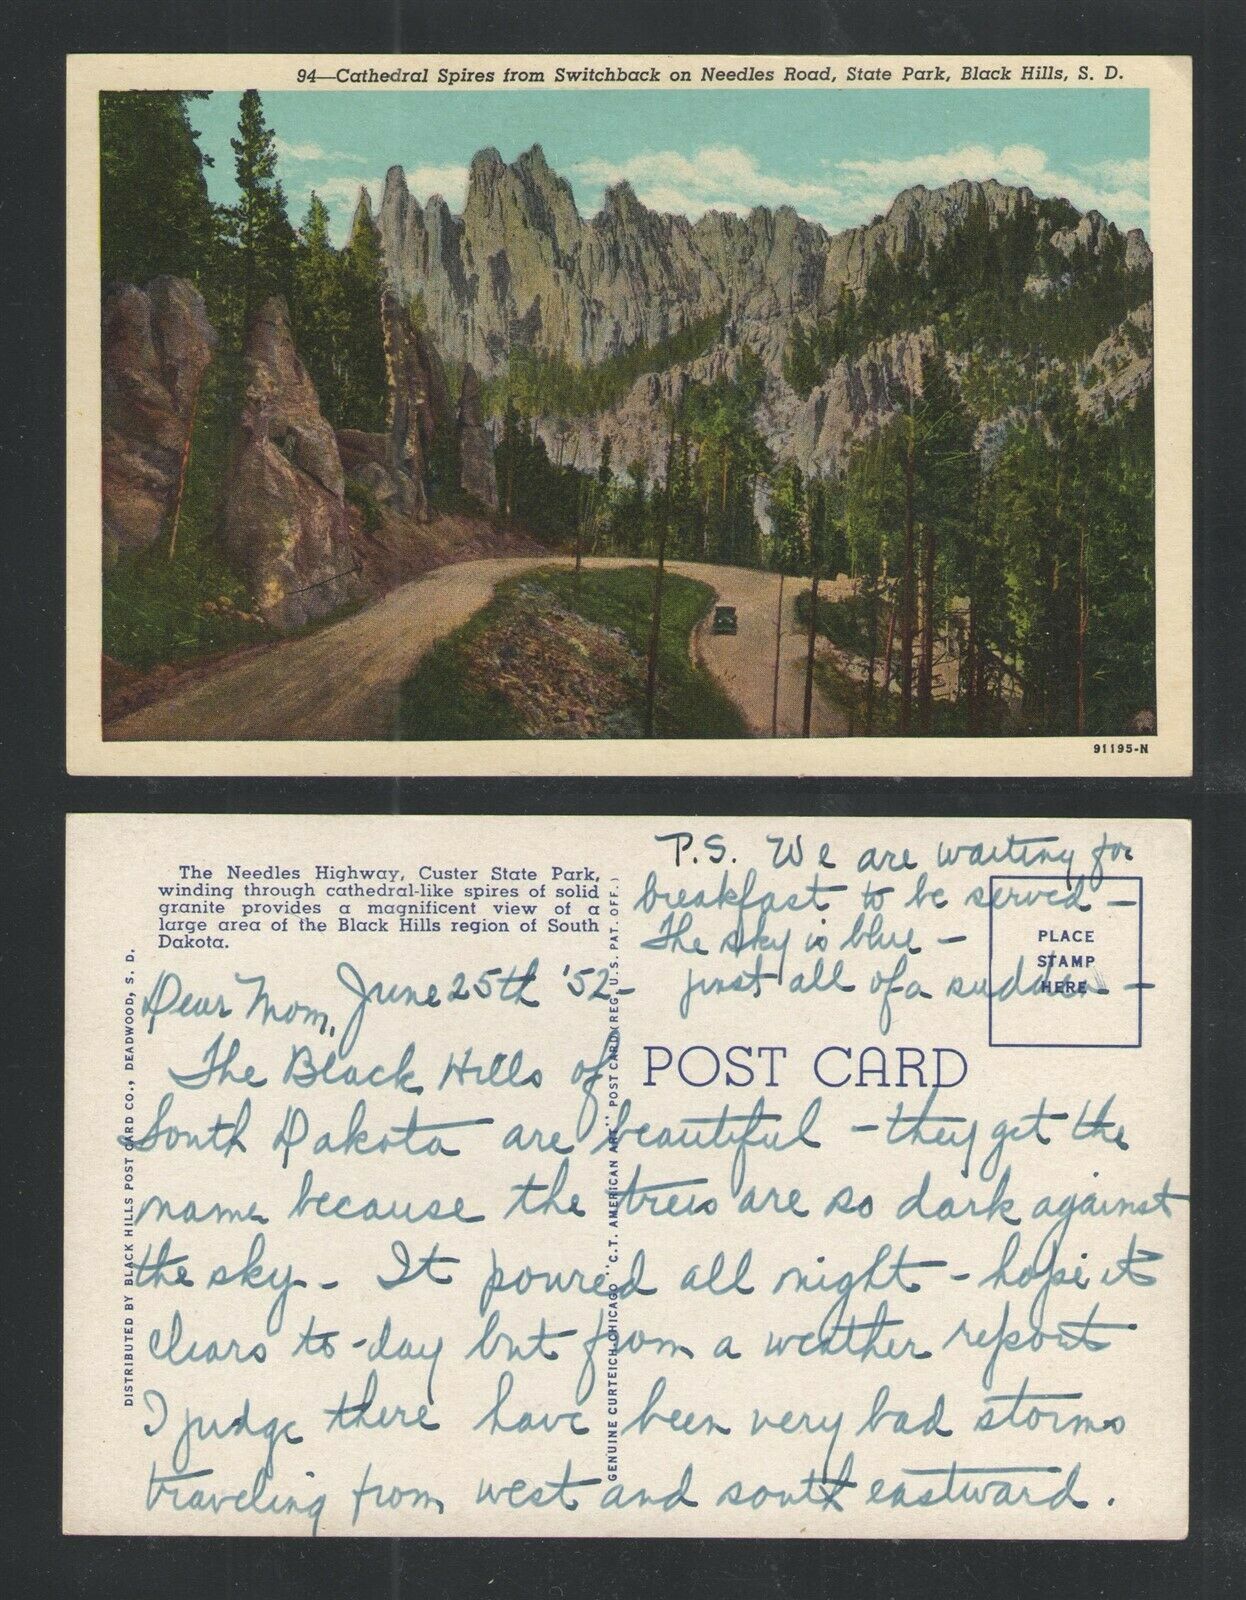 94—Cathedral Spires from Switchback on Needles Road, State Park, Black Hills, S. D.
91195-N
The Needles Highway, Custer State Park,
winding through cathedral-like spires of solid
granite provides a magnificent view of a
large area of the Black Hills region of South
Dakota.
P.S. We are waiting for
breakfast to be served -
The sky is blue -
just all of a sudden - -
PLACE
STAMP
HERE
POST CARD
DISTRIBUTED BY BLACK HILLS POST CARD CO., DEADWOOD, S. D.
GENUINE CURTEICH-CHICAGO "C.T. AMERICAN ART" POST CARD (REG. U.S. PAT. OFF.)
Dear Mom, June 25th '52-
The Black Hills of
South Dakota are beautiful - they get the
name because the trees are so dark against
the sky - It poured all night - hope it
clears to-day but from a weather report
I judge there have been very bad storms
traveling from west and south eastward.